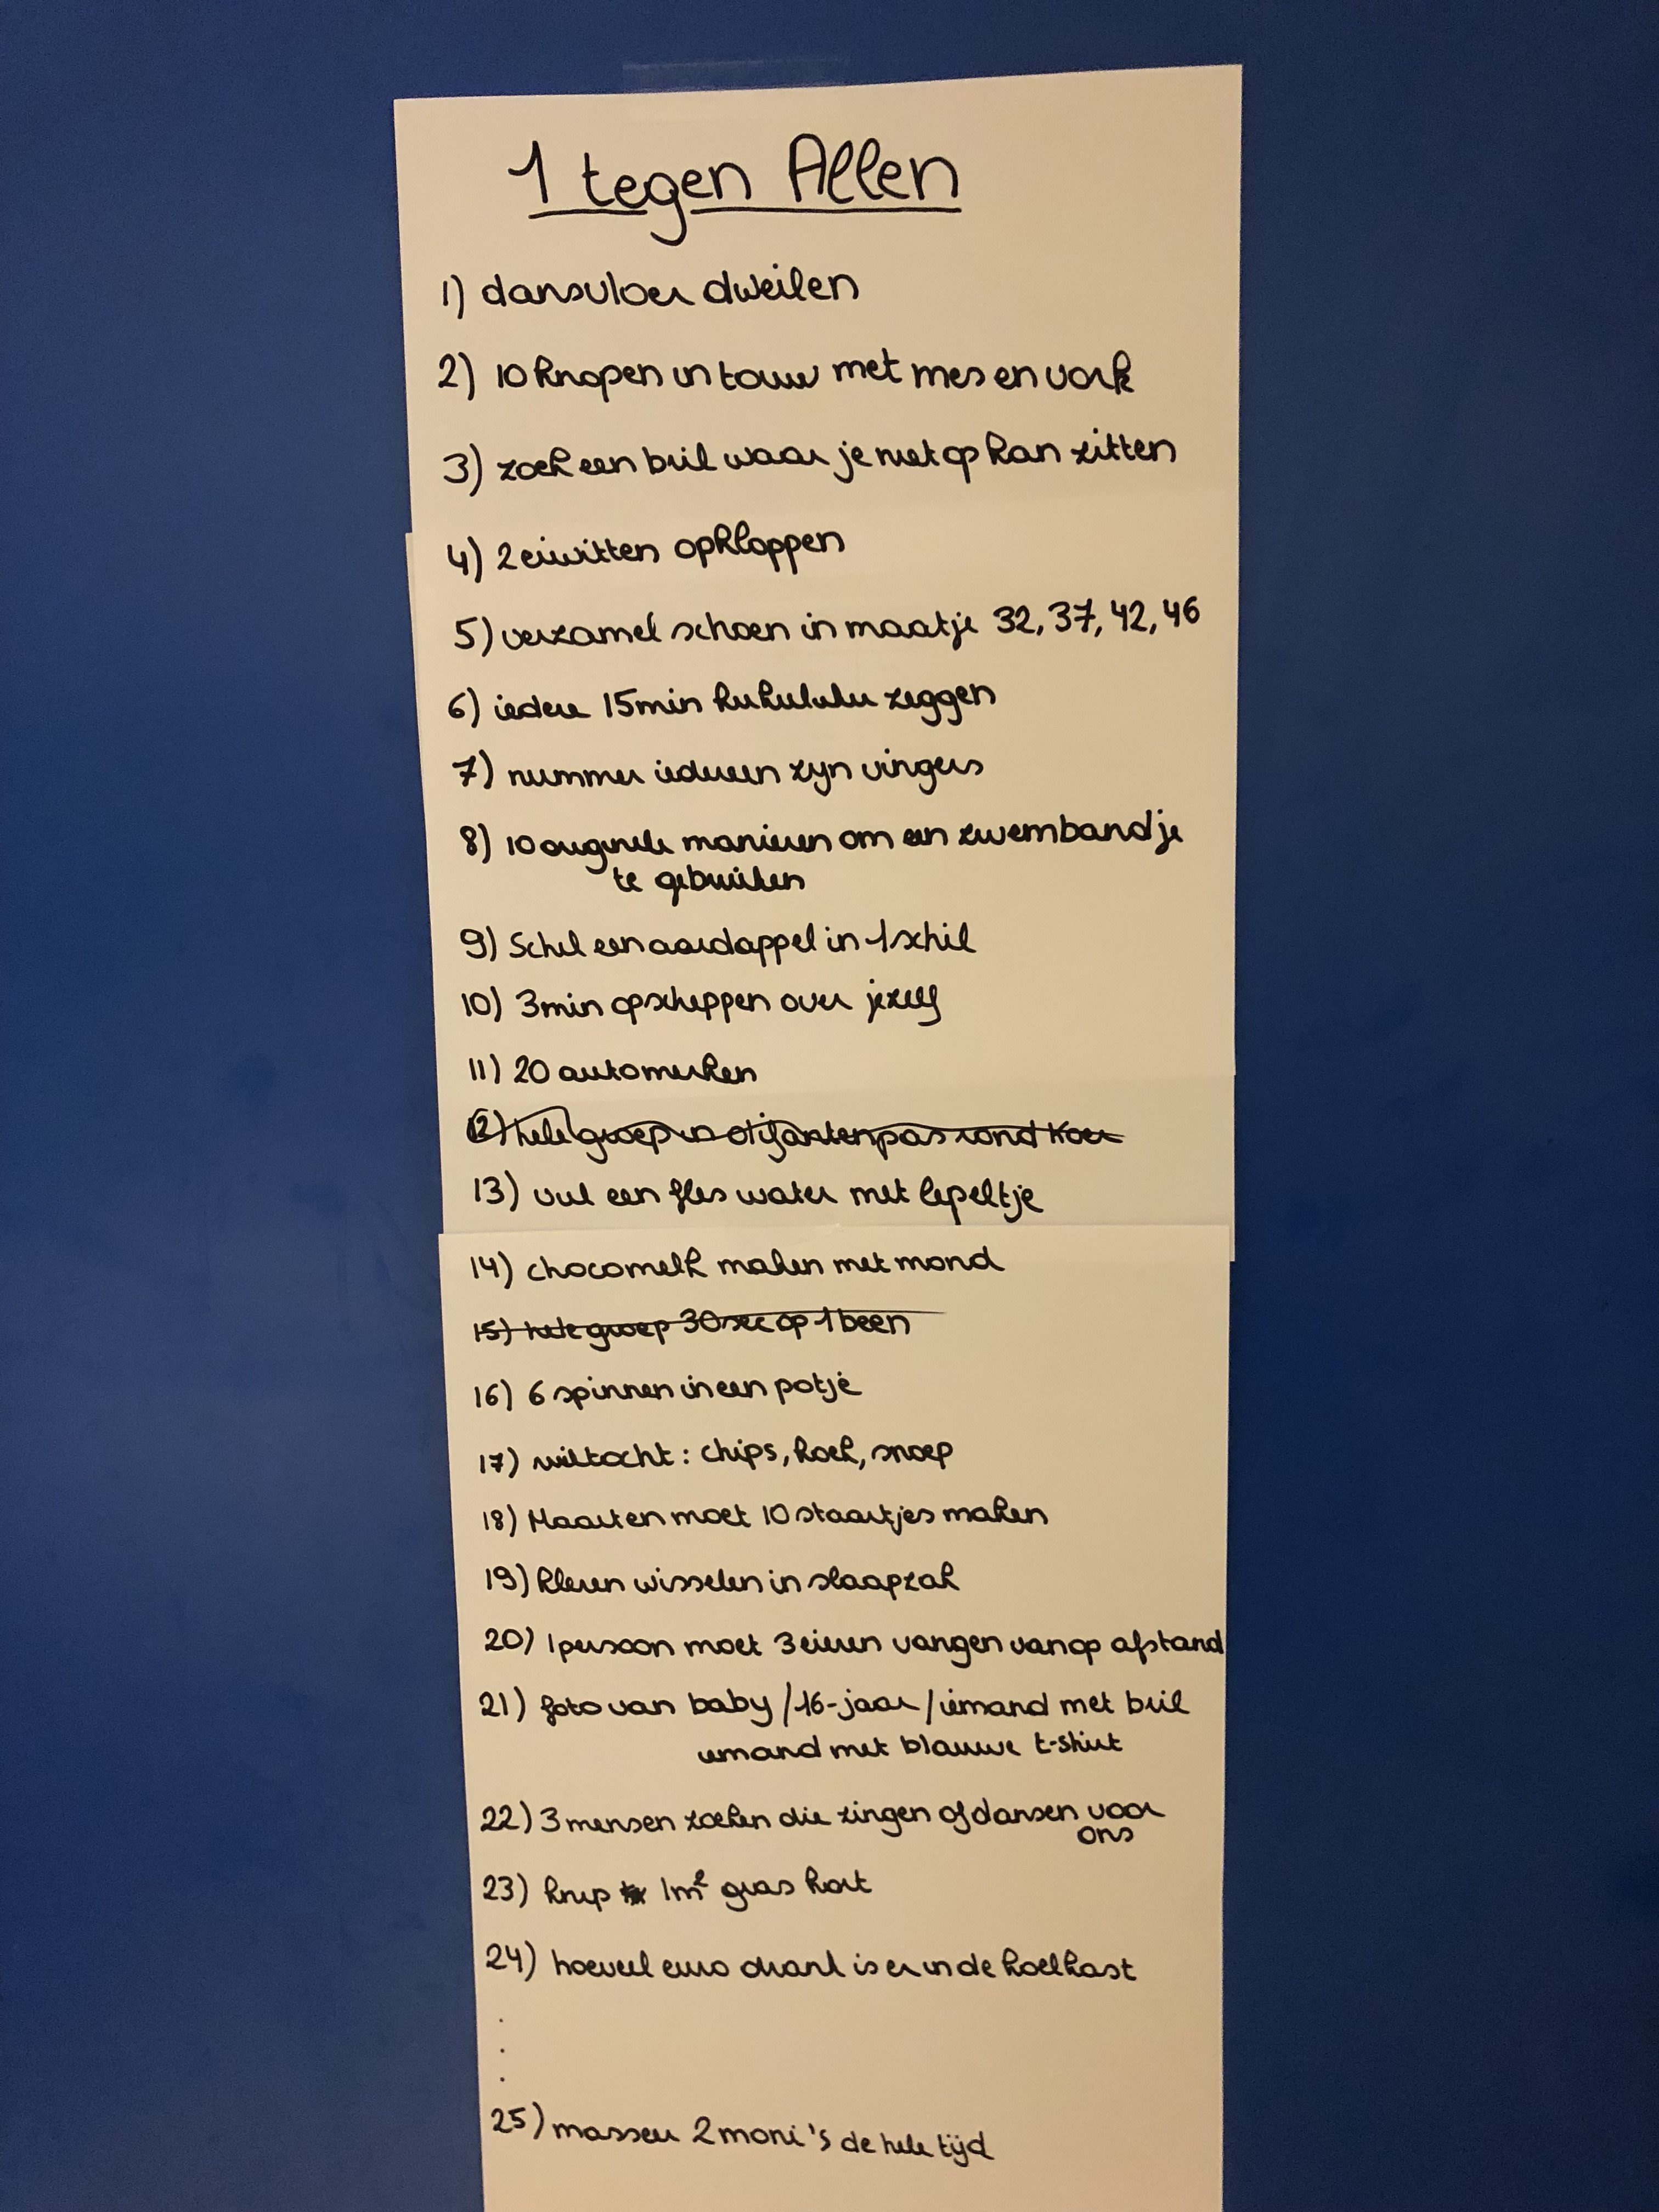 1 tegen Allen
1) dansvloer dweilen
2) 10 knopen in touw met mes en vork
3) zoek een bril waar je niet op kan zitten
4) 2 eiwitten opkloppen
5) verzamel schoen in maatje 32, 37, 42, 46
6) iedere 15min kukulule zeggen
7) nummer iedereen zijn vingers
8) 10 originele manieren om een zwembandje
te gebruiken
9) Schil een aardappel in 1 schil
10) 3min opscheppen over jezelf
11) 20 automerken
12) hele groep in olifantenpas rond koer
13) vul een fles water met lepeltje
14) chocomelk maken met mond
15) hele groep 30 sec op 1 been
16) 6 spinnen in een potje
17) ruiltocht: chips, koek, snoep
18) Maarten moet 10 staartjes maken
19) kleren wisselen in slaapzak
20) 1 persoon moet 3 eieren vangen vanop afstand
21) foto van baby / 16-jaar / iemand met bril
iemand met blauwe t-shirt
22) 3 mensen zoeken die zingen of dansen voor
ons
23) knip 1m² gras kort
24) hoeveel euro drank is er in de koelkast
.
.
.
25) masseer 2 moni's de hele tijd